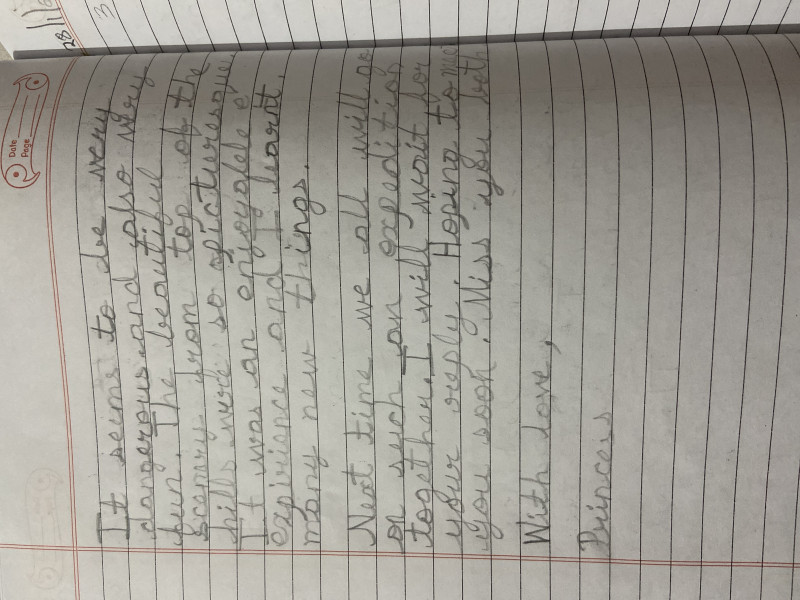 Date
Page
28/1/
3
It seims to be very
dangerous and also very
fun. The beautiful
scenry from top of the
hills were so picturesque.
It was an enjoyable e
expirience and I learnt
many new things.
Next time we all will go
on such an expedition
together. I will wait for
your reply. Hoping to meet
you soon. Miss you both
With love,
Princess